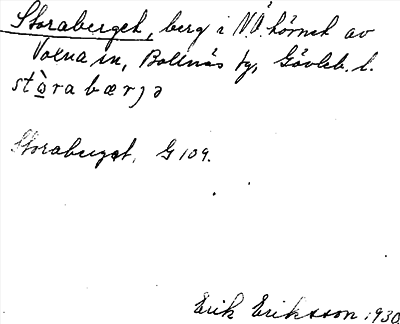 Storaberget, berg i N.Ö. hörnet av
Voxna sn, Bollnäs tg, Gävleb. l.
stὼrabærjə
Storaberget. G 109.
Erik Eriksson 1930.